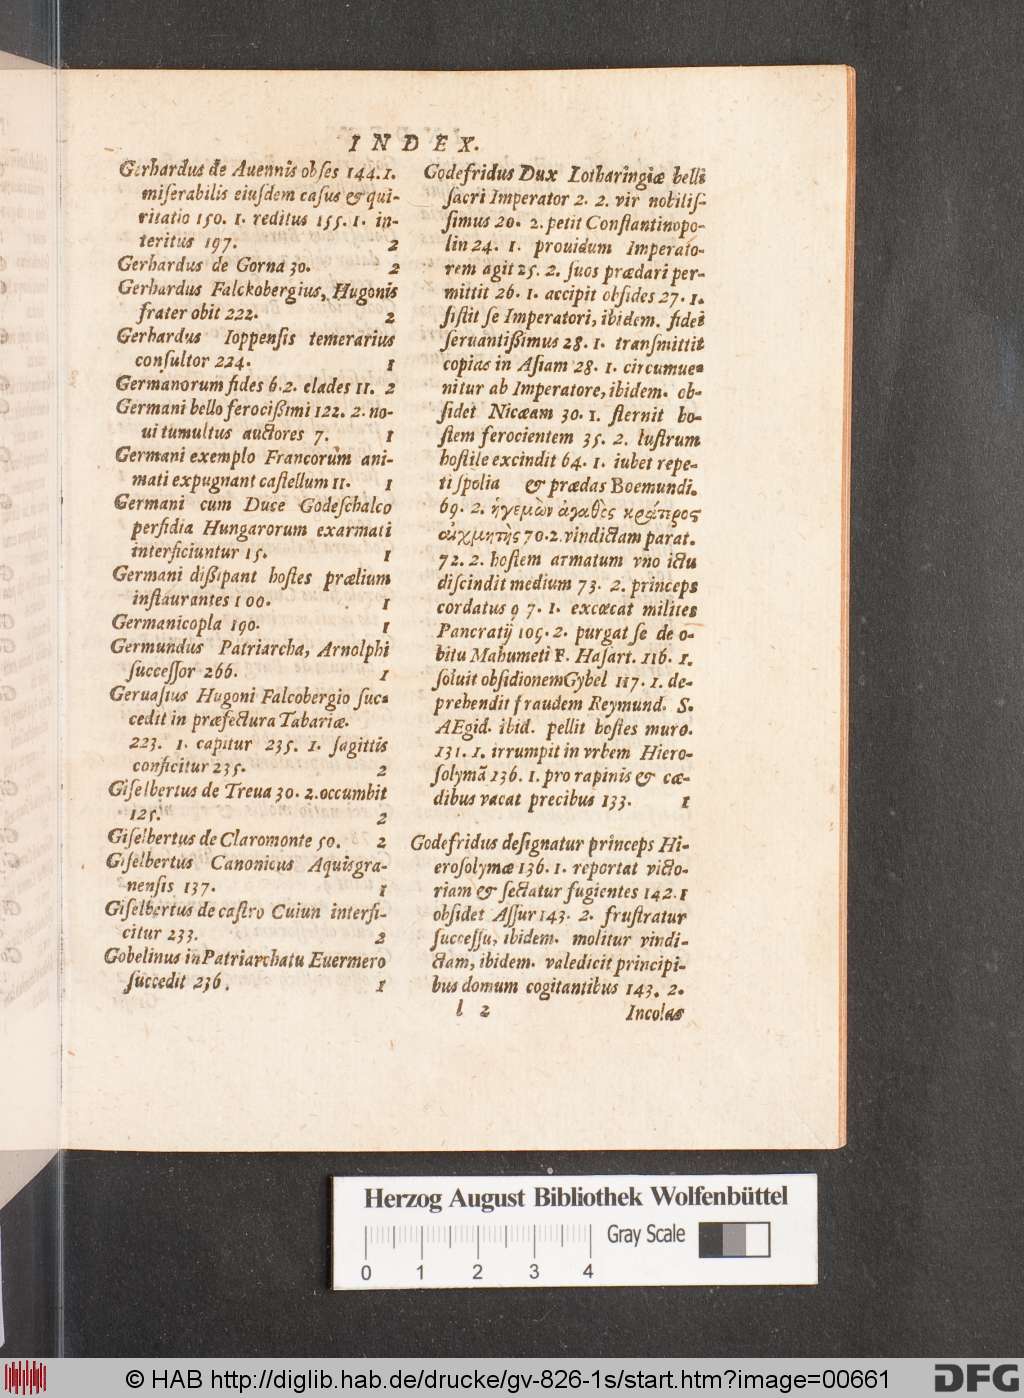 INDEX.
Gerhardus de Auennis obſes 144. 1.
miſerabilis eiuſdem caſus & qui-
ritatio 150. 1. reditus 155. 1. in-
teritus 197. 2
Gerhardus de Gorna 30. 2
Gerhardus Falckobergius, Hugonis
frater obit 222. 2
Gerhardus Ioppenſis temerarius
conſultor 224. 1
Germanorum fides 6. 2. clades 11. 2
Germani bello ferocißimi 122. 2. no-
ui tumultus auctores 7. 1
Germani exemplo Francorum ani-
mati expugnant caſtellum 11. 1
Germani cum Duce Godeſchalco
perfidia Hungarorum exarmati
interficiuntur 15. 1
Germani dißipant hoſtes prælium
inſtaurantes 100. 1
Germanicopla 190. 1
Germundus Patriarcha, Arnolphi
ſucceſſor 266. 1
Geruaſius Hugoni Falcobergio ſuc-
cedit in præfectura Tabariæ.
223. 1. capitur 235. 1. ſagittis
conficitur 235. 2
Giſelbertus de Treua 30. 2. occumbit
125. 2
Giſelbertus de Claromonte 50. 2
Giſelbertus Canonicus Aquisgra-
nenſis 137. 1
Giſelbertus de caſtro Cuiun interfi-
citur 233. 2
Gobelinus in Patriarchatu Euermero
ſuccedit 236. 1
Godefridus Dux Lotharingiæ belli
ſacri Imperator 2. 2. vir nobiliſ-
ſimus 20. 2. petit Conſtantinopo-
lin 24. 1. prouidum Imperato-
rem agit 25. 2. ſuos prædari per-
mittit 26. 1. accipit obſides 27. 1.
ſiſtit ſe Imperatori, ibidem. fidei
ſeruantißimus 28. 1. tranſmittit
copias in Aſiam 28. 1. circumue-
nitur ab Imperatore, ibidem. ob-
ſidet Nicæam 30. 1. ſternit ho-
ſtem ferocientem 35. 2. luſtrum
hoſtile excindit 64. 1. iubet repe-
ti ſpolia & prædas Boemundi.
69. 2. ἡγεμὼν ἀγαθὸς κράτερος
αἰχμητὴς 70. 2. vindictam parat.
72. 2. hoſtem armatum vno ictu
diſcindit medium 73. 2. princeps
cordatus 97. 1. excœcat milites
Pancratij 105. 2. purgat ſe de o-
bitu Mahumeti F. Haſart. 116. 1.
ſoluit obſidionem Gybel 117. 1. de-
prehendit fraudem Reymund. S.
AEgid. ibid. pellit hoſtes muro.
131. 1. irrumpit in vrbem Hiero-
ſolymā 136. 1. pro rapinis & cæ-
dibus vacat precibus 133. 1
Godefridus deſignatur princeps Hi-
eroſolymæ 136. 1. reportat victo-
riam & ſectatur fugientes 142. 1
obſidet Aſſur 143. 2. fruſtratur
ſucceſſu, ibidem. molitur vindi-
ctam, ibidem. valedicit principi-
bus domum cogitantibus 143. 2.
l 2 Incolas
Herzog August Bibliothek Wolfenbüttel
Gray Scale
0 1 2 3 4
© HAB http://diglib.hab.de/drucke/gv-826-1s/start.htm?image=00661
DFG